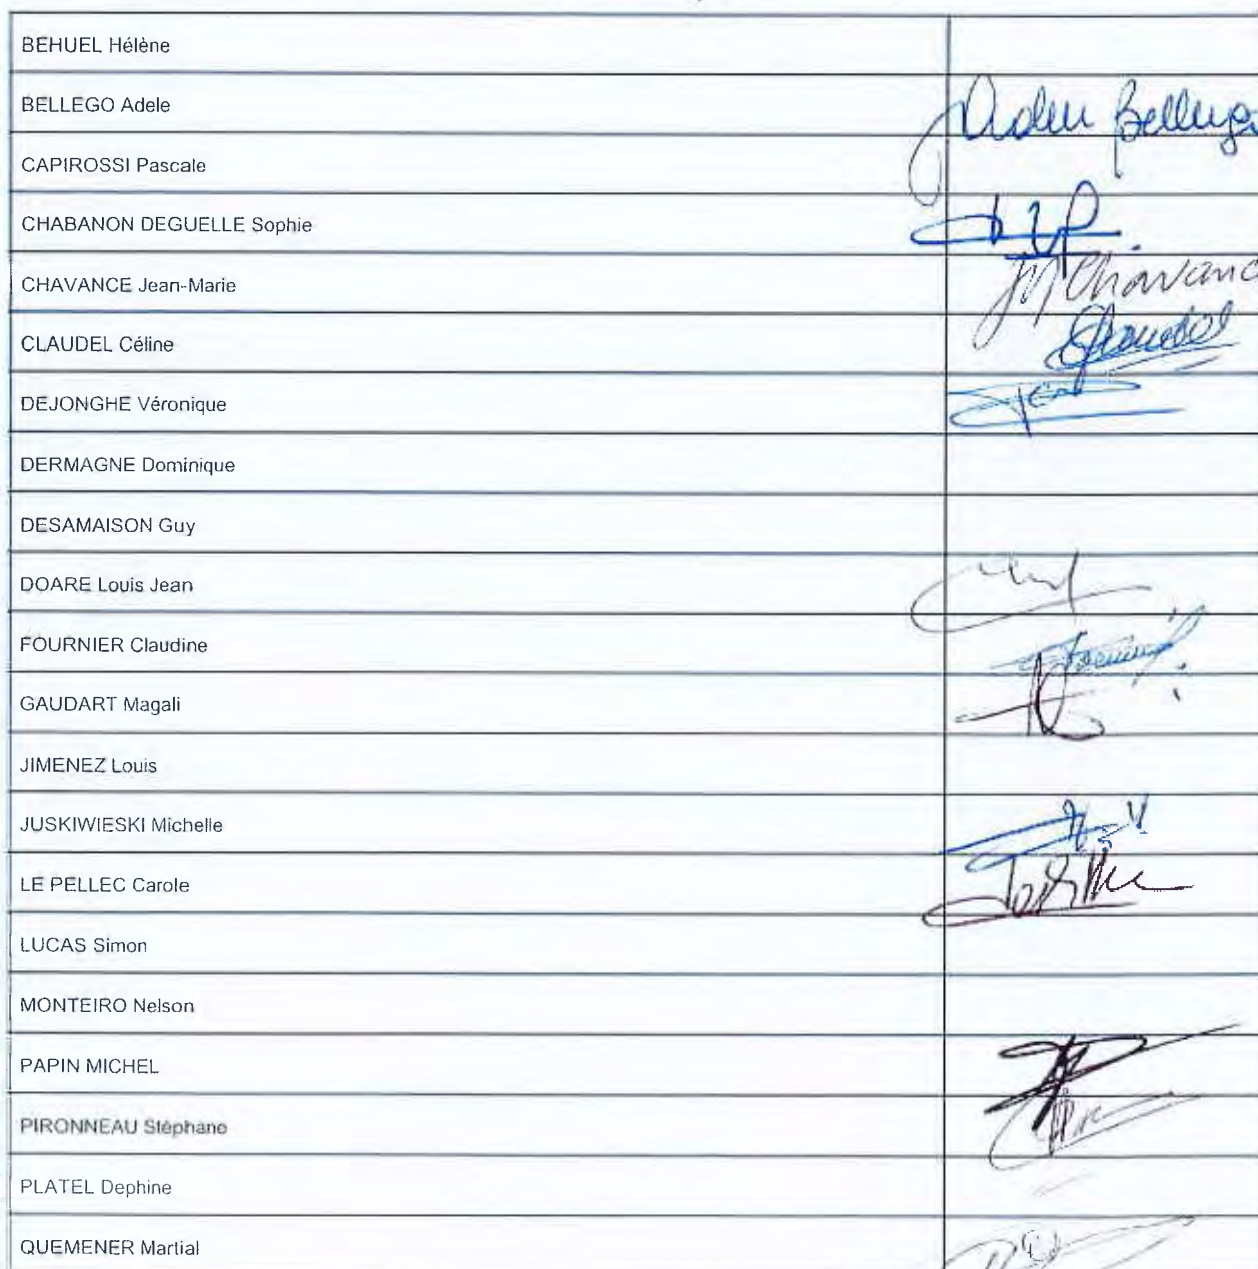 BEHUEL Hélène
BELLEGO Adele
CAPIROSSI Pascale
CHABANON DEGUELLE Sophie
CHAVANCE Jean-Marie
CLAUDEL Céline
DEJONGHE Véronique
DERMAGNE Dominique
DESAMAISON Guy
DOARE Louis Jean
FOURNIER Claudine
GAUDART Magali
JIMENEZ Louis
JUSKIWIESKI Michelle
LE PELLEC Carole
LUCAS Simon
MONTEIRO Nelson
PAPIN MICHEL
PIRONNEAU Stéphane
PLATEL Dephine
QUEMENER Martial